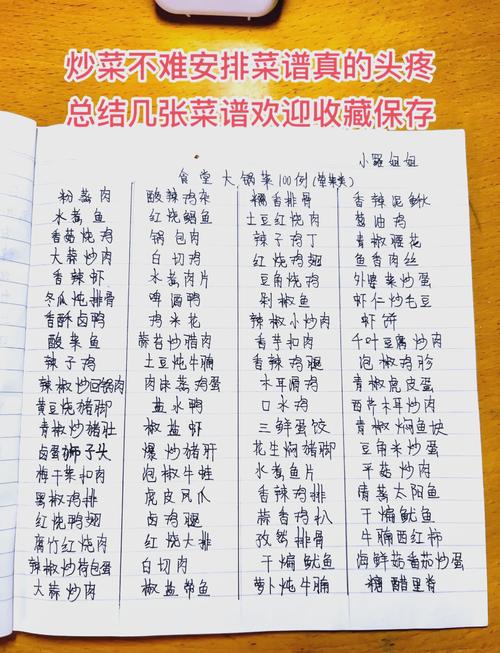 炒菜不难安排菜谱真的头疼
总结几张菜谱欢迎收藏保存
小羅姐姐
食堂大锅菜100例(荤菜类)
粉蒸肉 酸辣鸡杂 糯香排骨 香辣泥鳅
水煮鱼 红烧鲳鱼 土豆红烧肉 葱油鸡
香菇烧鸡 锅包肉 辣子鸡丁 青椒腰花
大蒜炒肉 白切鸡 红烧鸡翅 鱼香肉丝
香辣虾 水煮肉片 豆角烧鸡 外婆菜炒蛋
冬瓜炖排骨 啤酒鸭 剁椒鱼 虾仁炒毛豆
香酥卤鸭 鸡米花 辣椒小炒肉 虾饼
酸菜鱼 蒜苔炒腊肉 香芋扣肉 千叶豆腐炒肉
辣子鸡 土豆炖牛腩 香辣鸡腿 泡椒鸡胗
辣椒炒回锅肉 肉沫蒸鸡蛋 木耳滑鸡 青椒虎皮蛋
黄豆烧猪脚 盐水鸭 口水鸡 西芹木耳炒肉
青椒炒猪肚 椒盐虾 三鲜蛋饺 青椒焖鱼块
卤蛋狮子头 爆炒猪肝 花生焖猪脚 豆角米炒蛋
梅干菜扣肉 泡椒牛蛙 水煮鱼片 平菇炒肉
黑椒鸡排 虎皮凤爪 香辣鸡排 清蒸太阳鱼
红烧鸭翅 卤鸡腿 蒜香鸡扒 干煸鱿鱼
腐竹红烧肉 红烧大排 孜然排骨 牛腩西红柿
辣椒炒荷包蛋 白切肉 干煸鱿鱼 海鲜菇番茄炒蛋
大蒜炒肉 椒盐带鱼 萝卜炖牛腩 糖醋里脊